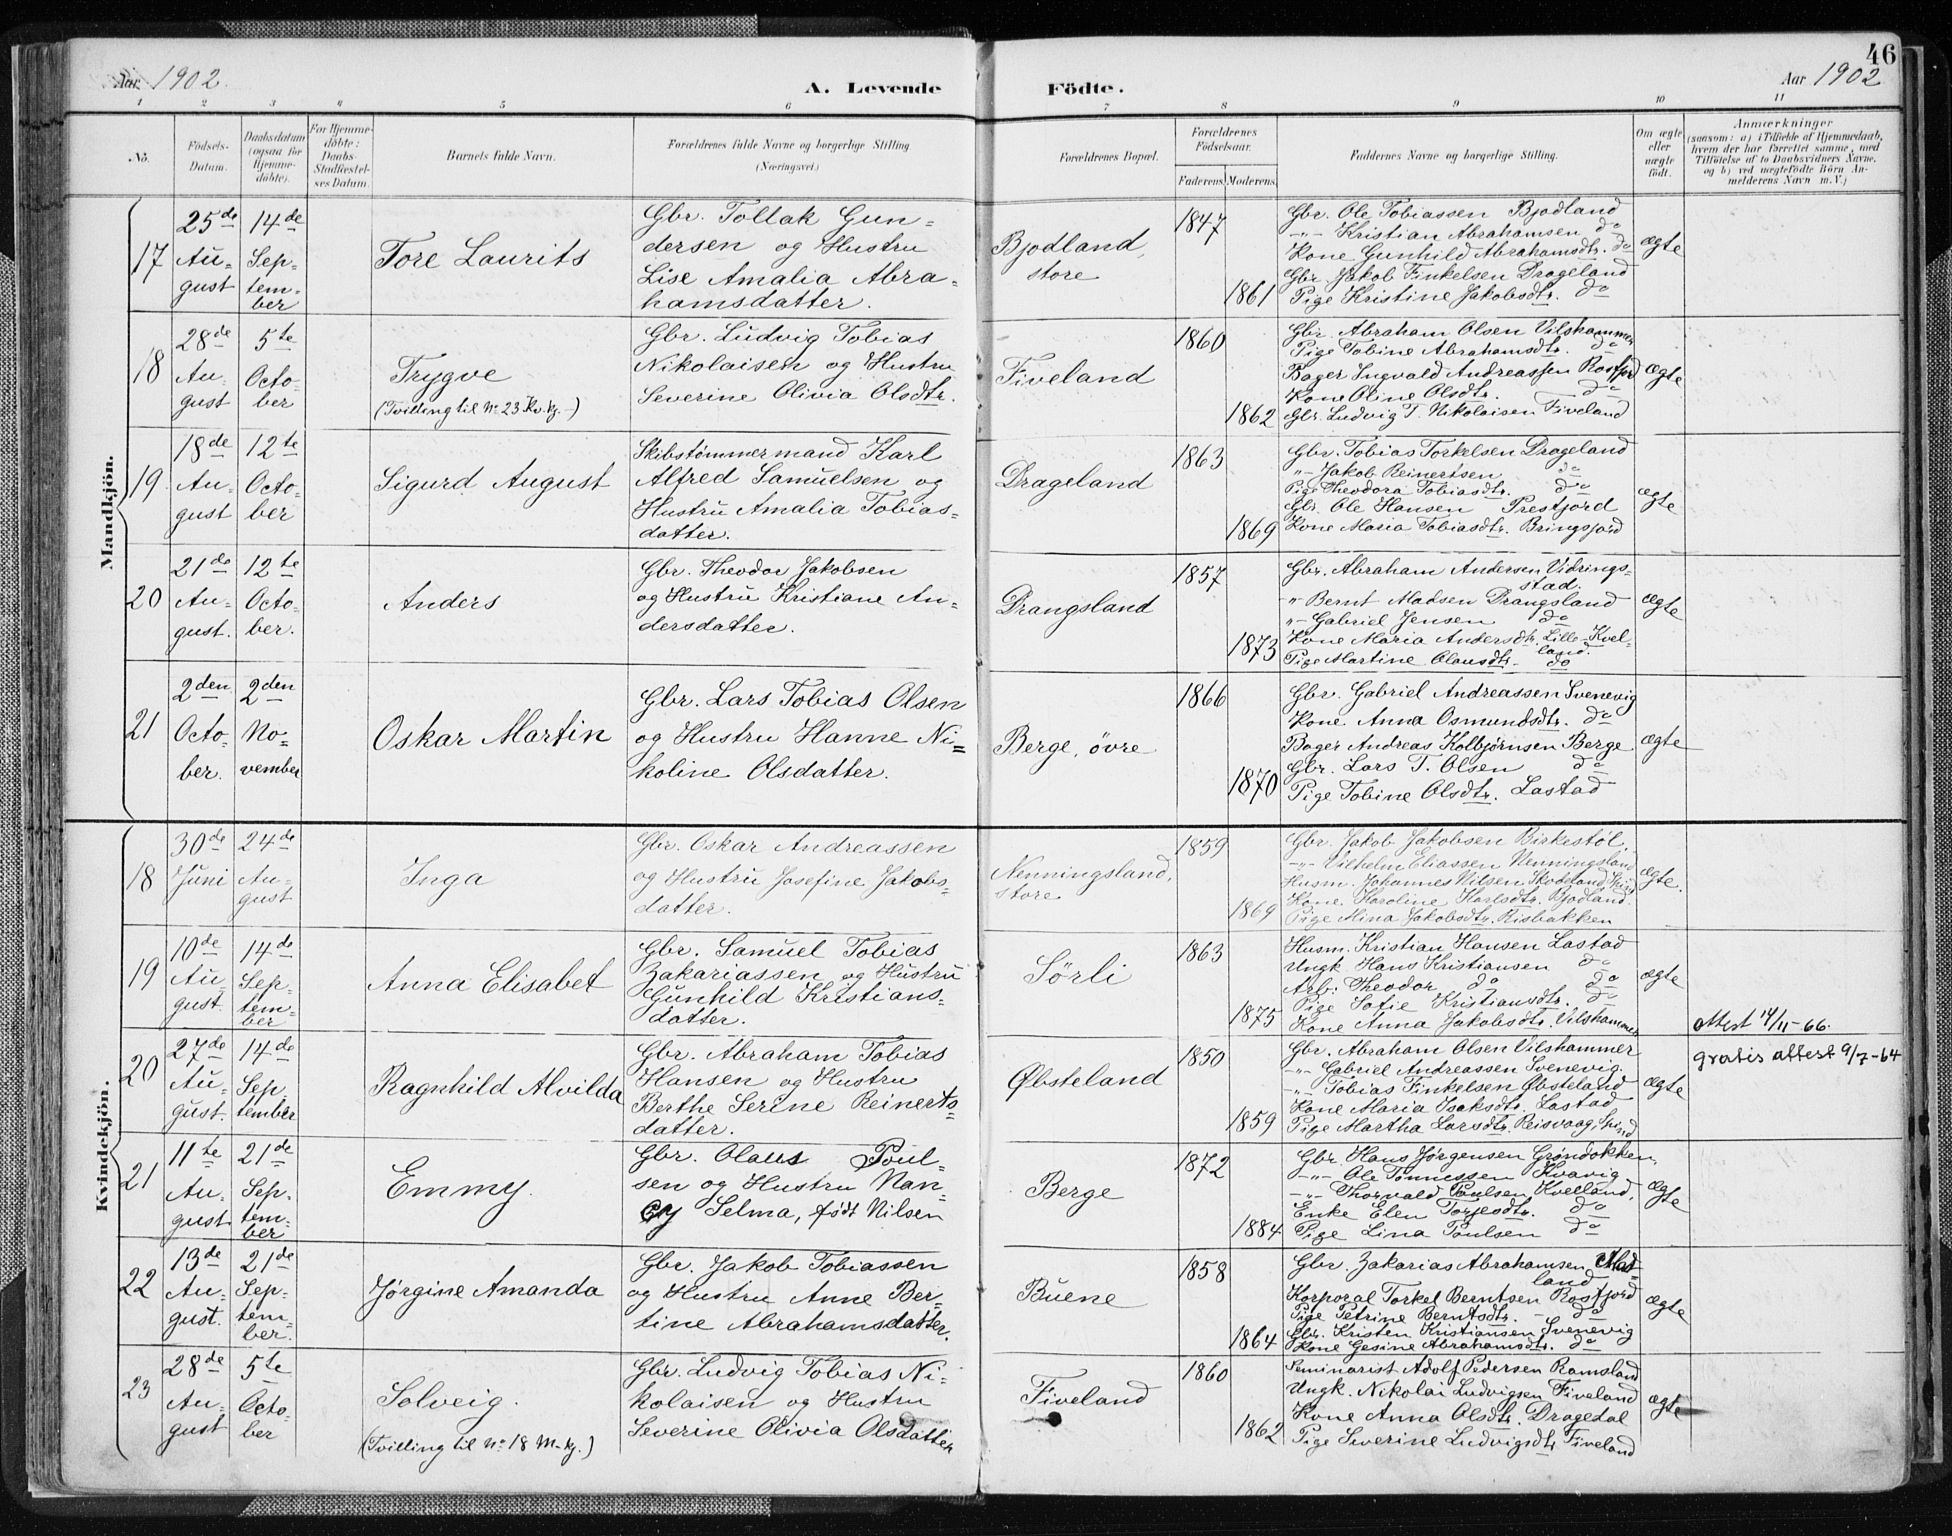 46
Aar 1902.
A. Levende Födte.
Aar 1902
1 2 3 4 5 6 7 8 9 10 11
No.
Födsels-Datum.
Daabsdatum (ogsaa for Hjemmedöbte).
For Hjemmedöbte: Daabs-Stadfæstelses Datum.
Barnets fulde Navn.
Forældrenes fulde Navne og borgerlige Stilling
(Næringsvei.)
Forældrenes Bopæl.
Forældrenes Födselsaar.
Faderens. Moderens.
Faddernes Navne og borgerlige Stilling.
Om ægte eller uægte födt.
Anmærkninger
(saasom: a) i Tilfælde af Hjemmedaab, hvem der har forrettet samme, med Tilföielse af to Daabsvidners Navne, og b) ved uægtefödte Börn Anmelderens Navn m. V.)
Mandkjön.
17
25de August
14de September
Tore Laurits
Gbr. Tollak Gun-
dersen og Hustru
Lise Amalia Abra-
hamsdatter.
Bjodland,
store
1847
1861
Gbr. Ole Tobiassen Bjodland
-"- Kristian Abrahamsen do
Kone Gunhild Abrahamsdtr. do
Gbr. Jakob Finkelsen Drageland
Pige Kristine Jakobsdtr. do
ægte
18
28de August
5te October
Trygve
(Tvilling til No 23 Kv.kj.)
Gbr. Ludvig Tobias
Nikolaisen og Hustru
Severine Olivia Olsdtr.
Fiveland
1860
1862
Gbr. Abraham Olsen Vilshammer
Pige Tobine Abrahamsdtr. do
Bager Ingvald Andreassen Rosfjord
Kone Oline Olsdtr. do
Gbr. Ludvig T. Nikolaisen Fiveland
ægte
19
18de August
12te October
Sigurd August
Skibstømmermand Karl
Alfred Samuelsen og
Hustru Amalia Tobias-
datter.
Drageland
1863
1869
Gbr. Tobias Torkelsen Drageland
"- Jakob Reinertsen do
Pige Theodora Tobiasdtr. do
Gbr. Ole Hansen Prestjord
Kone Maria Tobiasdtr. Bringsjord
ægte
20
21de August.
12te October.
Anders
Gbr. Theodor Jakobsen
og Hustru Kristiane An-
dersdatter.
Drangsland
1857
1873
Gbr. Abraham Andersen Vidrings-
stad.
-" Bernt Madsen Drangsland
"- Gabriel Jensen do
Kone Maria Andersdtr. Lille-Kvel-
land.
Pige Martine Olausdtr. do
ægte
21
2den October.
2den November
Oskar Martin
Gbr. Lars Tobias Olsen
og Hustru Hanne Ni-
koline Olsdatter.
Berge, övre
1866
1870
Gbr. Gabriel Andreassen Svenevig
Kone Anna Osmundsdtr. do
Bager Andreas Kolbjørnsen Berge
Gbr. Lars T. Olsen do
Pige Tobine Olsdtr. Lastad
ægte
Kvindekjön.
18
30de Juni
24de August
Inga
Gbr. Oskar Andreassen
og Hustru Josefine Jakobs-
datter.
Nenningsland,
store
1859
1869
Gbr. Jakob Jakobsen Birkestøl,
-"- Vilhelm Eliassen Nenningsland
Husm. Johannes Nilsen Skodeland,
Kone Karoline Karlsdtr. Bjodland
Pige Mina Jakobsdtr. Risbakken
ægte.
19
10de August.
14de September
Anna Elisabet
Gbr. Samuel Tobias
Zakariassen og Hustru
Gunhild Kristians-
datter.
Sörli
1863
1875
Husm. Kristian Hansen Lastad
Ungk. Hans Kristiansen do
Arb. Theodor do do
Pige Sofie Kristiansdtr. do
Kone Anna Jakobsdtr. Vilshammer
ægte
Attest 14/11-66.
20
27de August.
14de September
Ragnhild Alvilda
Gbr. Abraham Tobias
Hansen og Hustru
Berthe Serine Reinerts-
datter.
Øbsteland
1850
1859
Gbr. Abraham Olsen Vilshammer
-"- Gabriel Andreassen Svenevig.
-"- Tobias Finkelsen Øbsteland
Kone Maria Isaksdtr. Lastad
Pige Martha Larsdtr. Reisvaag, Spind
ægte
gratis attest 9/7-64
21
11te August
21de September
Emmy.
Gbr. Olaus Poul-
sen og Hustru Nan-
cy Selma, født Nilsen
Berge
1872
1884
Gbr. Hans Jørgensen Grøndokken,
-"- Ole Tønnessen Kvavig
-"- Thorvald Poulsen Kvelland,
Enke Elen Torjesdtr. do
Pige Lina Poulsen do
ægte
22
13de August.
21de September.
Jørgine Amanda
Gbr. Jakob Tobiassen
og Hustru Anne Ber-
tine Abrahamsdatter.
Buene
1858
1864
Gbr. Zakarias Abrahamsen
land
Korporal Torkel Berntsen Rosfjord
Pige Petrine Berntsdtr. - do
Gbr. Kristen Kristiansen Svenevig
Kone Gesine Abrahamsdtr. do
ægte
23
28de August
5te October
Solveig.
(Tvilling til No 18 M-kj.)
Gbr. Ludvig Tobias Ni-
kolaisen og Hustru
Severine Olivia Olsdatter
Fiveland
1860
1862
Seminarist Adolf Pedersen Ramsland
Ungk. Nikolai Ludvigsen Fiveland
Kone Anna Olsdtr. Dragedal
Pige Severine Ludvigsdtr Fiveland
ægte